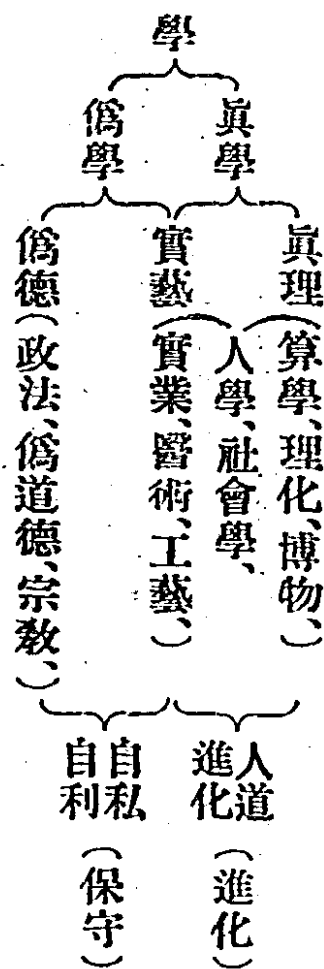 學
眞學
僞學
眞理(算學、理化、博物、
人學、社會學、)
實藝(實業、醫術、工藝、)
僞德(政法、僞道德、宗教、)
人道
進化
(進化)
自私
自利
(保守)